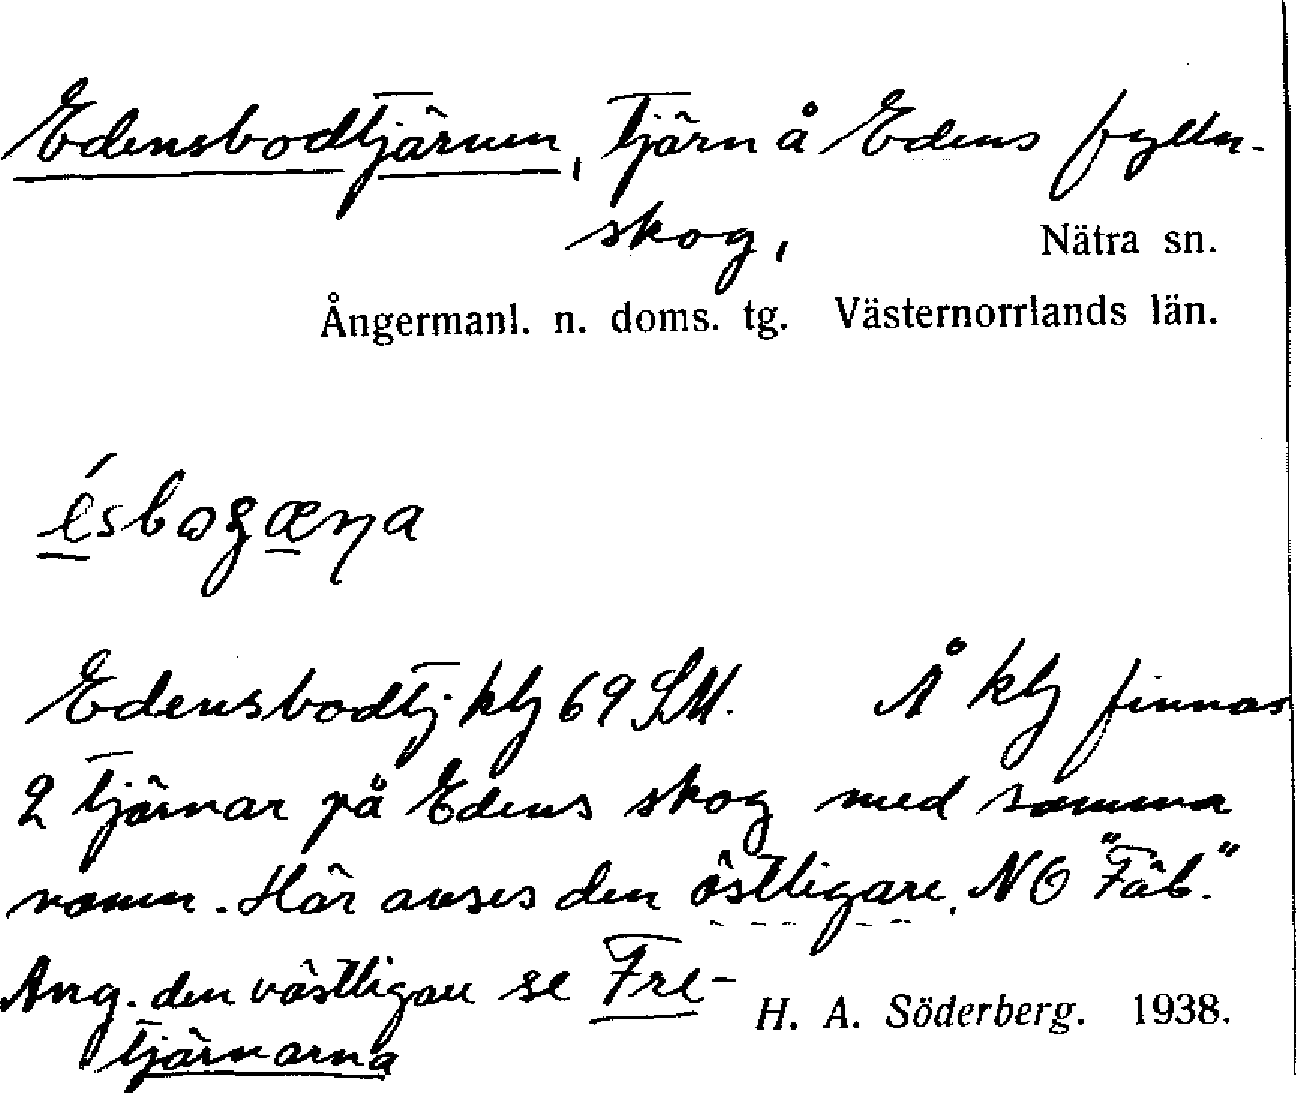 Edensbodtjärnen, Tjärn å Edens bylln-
skog, Nätra sn.
Ångermanl. n. doms. tg. Västernorrlands län.
Edensbodtj klj 69 SM. Å klj finnas
2 tjärnar på Edens skog med samma
namn. Här avses den östligare. NO "Fäb."
Ang. den västligare se Fre-
tjärnarna
H. A. Söderberg. 1938.